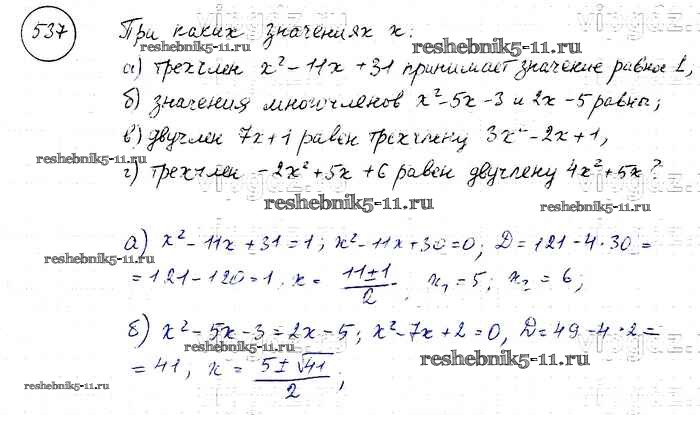 537 При каких значениях x:
reshebnik5-11.ru reshebnik5-11.ru
а) трехчлен x² - 11x + 31 принимает значение равное 1,
б) значения многочленов x² - 5x - 3 и 2x - 5 равны;
в) двучлен 7x + 1 равен трехчлену 3x² - 2x + 1,
reshebnik5-11.ru
г) трехчлен -2x² + 5x + 6 равен двучлену 4x² + 5x?
reshebnik5-11.ru reshebnik5-11.ru
а) x² - 11x + 31 = 1; x² - 11x + 30 = 0; D = 121 - 4·30 =
reshebnik5-11.ru
= 121 - 120 = 1, x = (11 ± 1)/2. x₁ = 5; x₂ = 6;
б) x² - 5x - 3 = 2x - 5; x² - 7x + 2 = 0, D = 49 - 4·2 =
reshebnik5-11.ru reshebnik5-11.ru
= 41, x = (5 ± √41)/2;
reshebnik5-11.ru